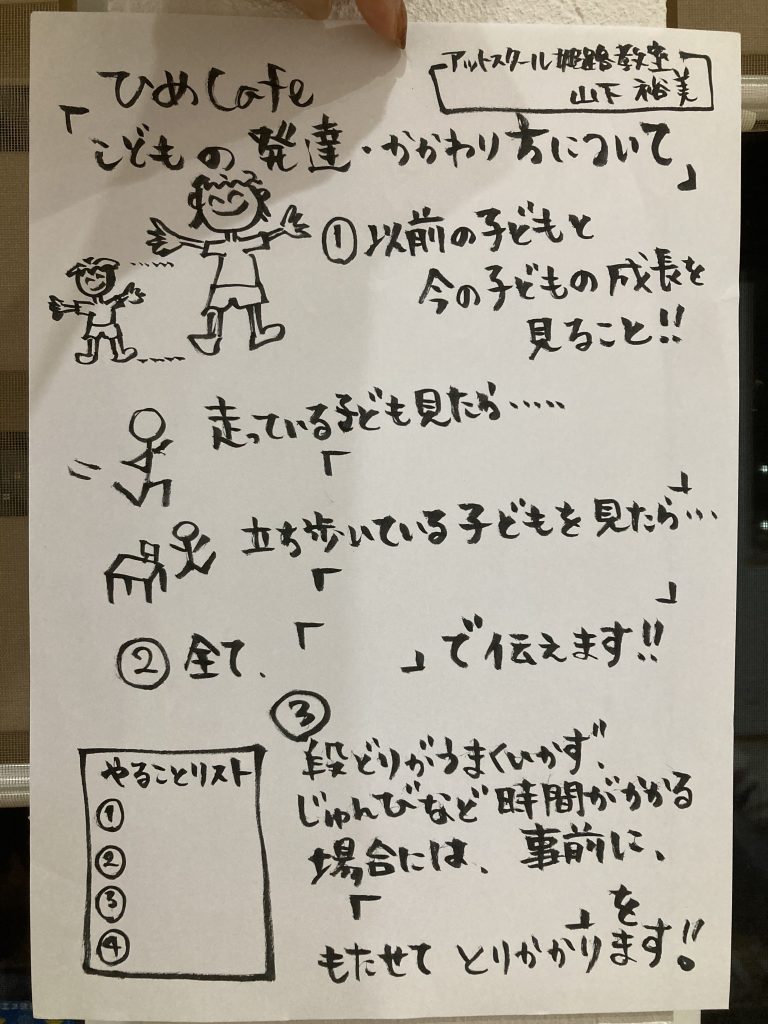 アットスクール姫路教室
山下 裕美
ひめCafe
「こどもの発達・かかわり方について」
① 以前の子どもと
今の子どもの成長を
見ること!!
走っている子ども見たら・・・・・
「 」
立ち歩いている子どもを見たら・・・
「 」
② 全て、「 」で伝えます!!
③
段どりがうまくいかず、
じゅんびなど時間がかかる
場合には、事前に、
「 」を
もたせて とりかかります!!
やることリスト
①
②
③
④